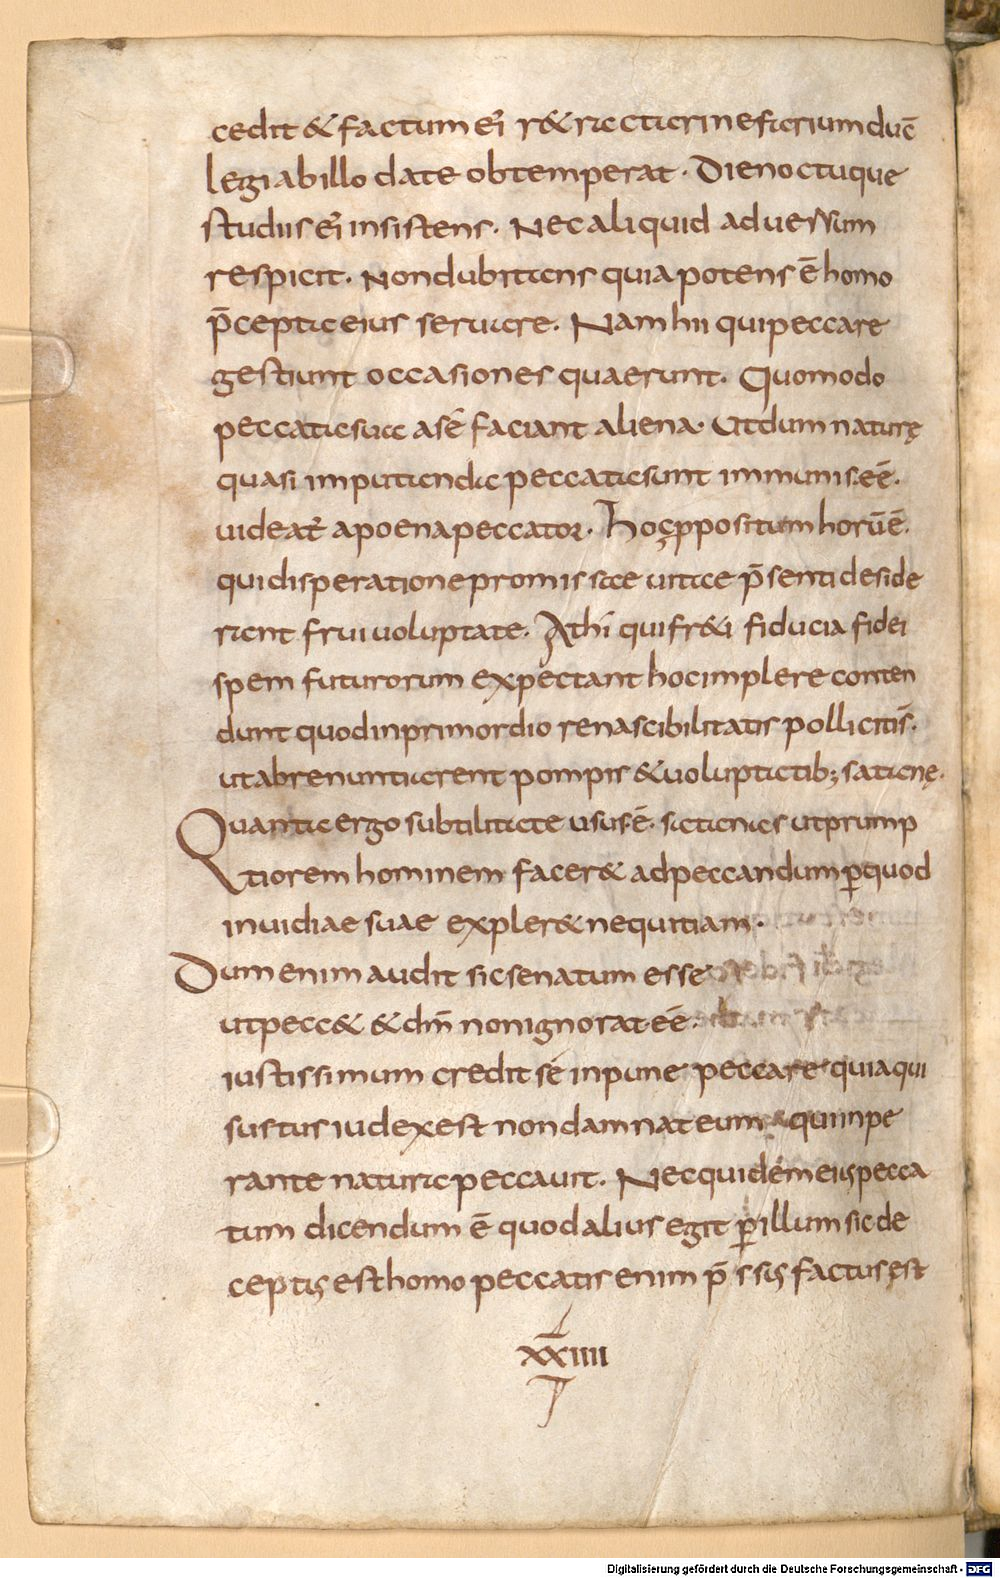 cedit & factum ei r&ractat in exterium duc̄
legi ab illo datae obtemperat. Die noctuque
studiis ei insistens. Nec aliquid aduersum
respicit. Non dubitans quia potens ē homo
p̄cepta eius seruare. Nam hii qui peccare
gestiunt occasiones quaerunt. Quomodo
peccata sua a se faciant aliena. Ut dum naturę
quasi inputanda peccata sunt immunis eē.
uideat̄ a poena peccator. hoc ppositum horū ē.
qui disperatione promissae uitae p̄senti deside
rant frui uoluptate. At hi qui fr&i fiducia fidei
spem futurorum expectant hoc implere conten
dunt quod in primordio renascibilitatis polliciti s̄.
ut abrenuntiarent pompis & uoluptatib; satanę.
Quanta ergo subtilitate usus ē. satanas ut prump
tiorem hominem facer& ad peccandum p̱ quod
inuidiae suae expler& nequitiam.
Dum enim audit sic senatum esse
ut pecc& & dm̄ non ignorat eē.
iustissimum credit se inpune peccare quia qui
sustus iudex est non damnat eum qui inpe
rante natura peccauit. Nec quidem eius pecca
tum dicendum ē quod alius egit p̱ illum sic de
ceptus est homo peccatis enim p̄ssis factus ęst
xxiiii
Digitalisierung gefördert durch die Deutsche Forschungsgemeinschaft - DFG